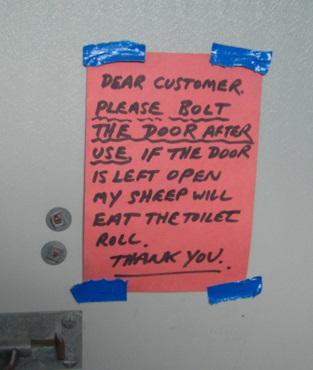 DEAR CUSTOMER.
PLEASE BOLT
THE DOOR AFTER
USE, IF THE DOOR
IS LEFT OPEN
MY SHEEP WILL
EAT THE TOILET
ROLL.
THANK YOU.